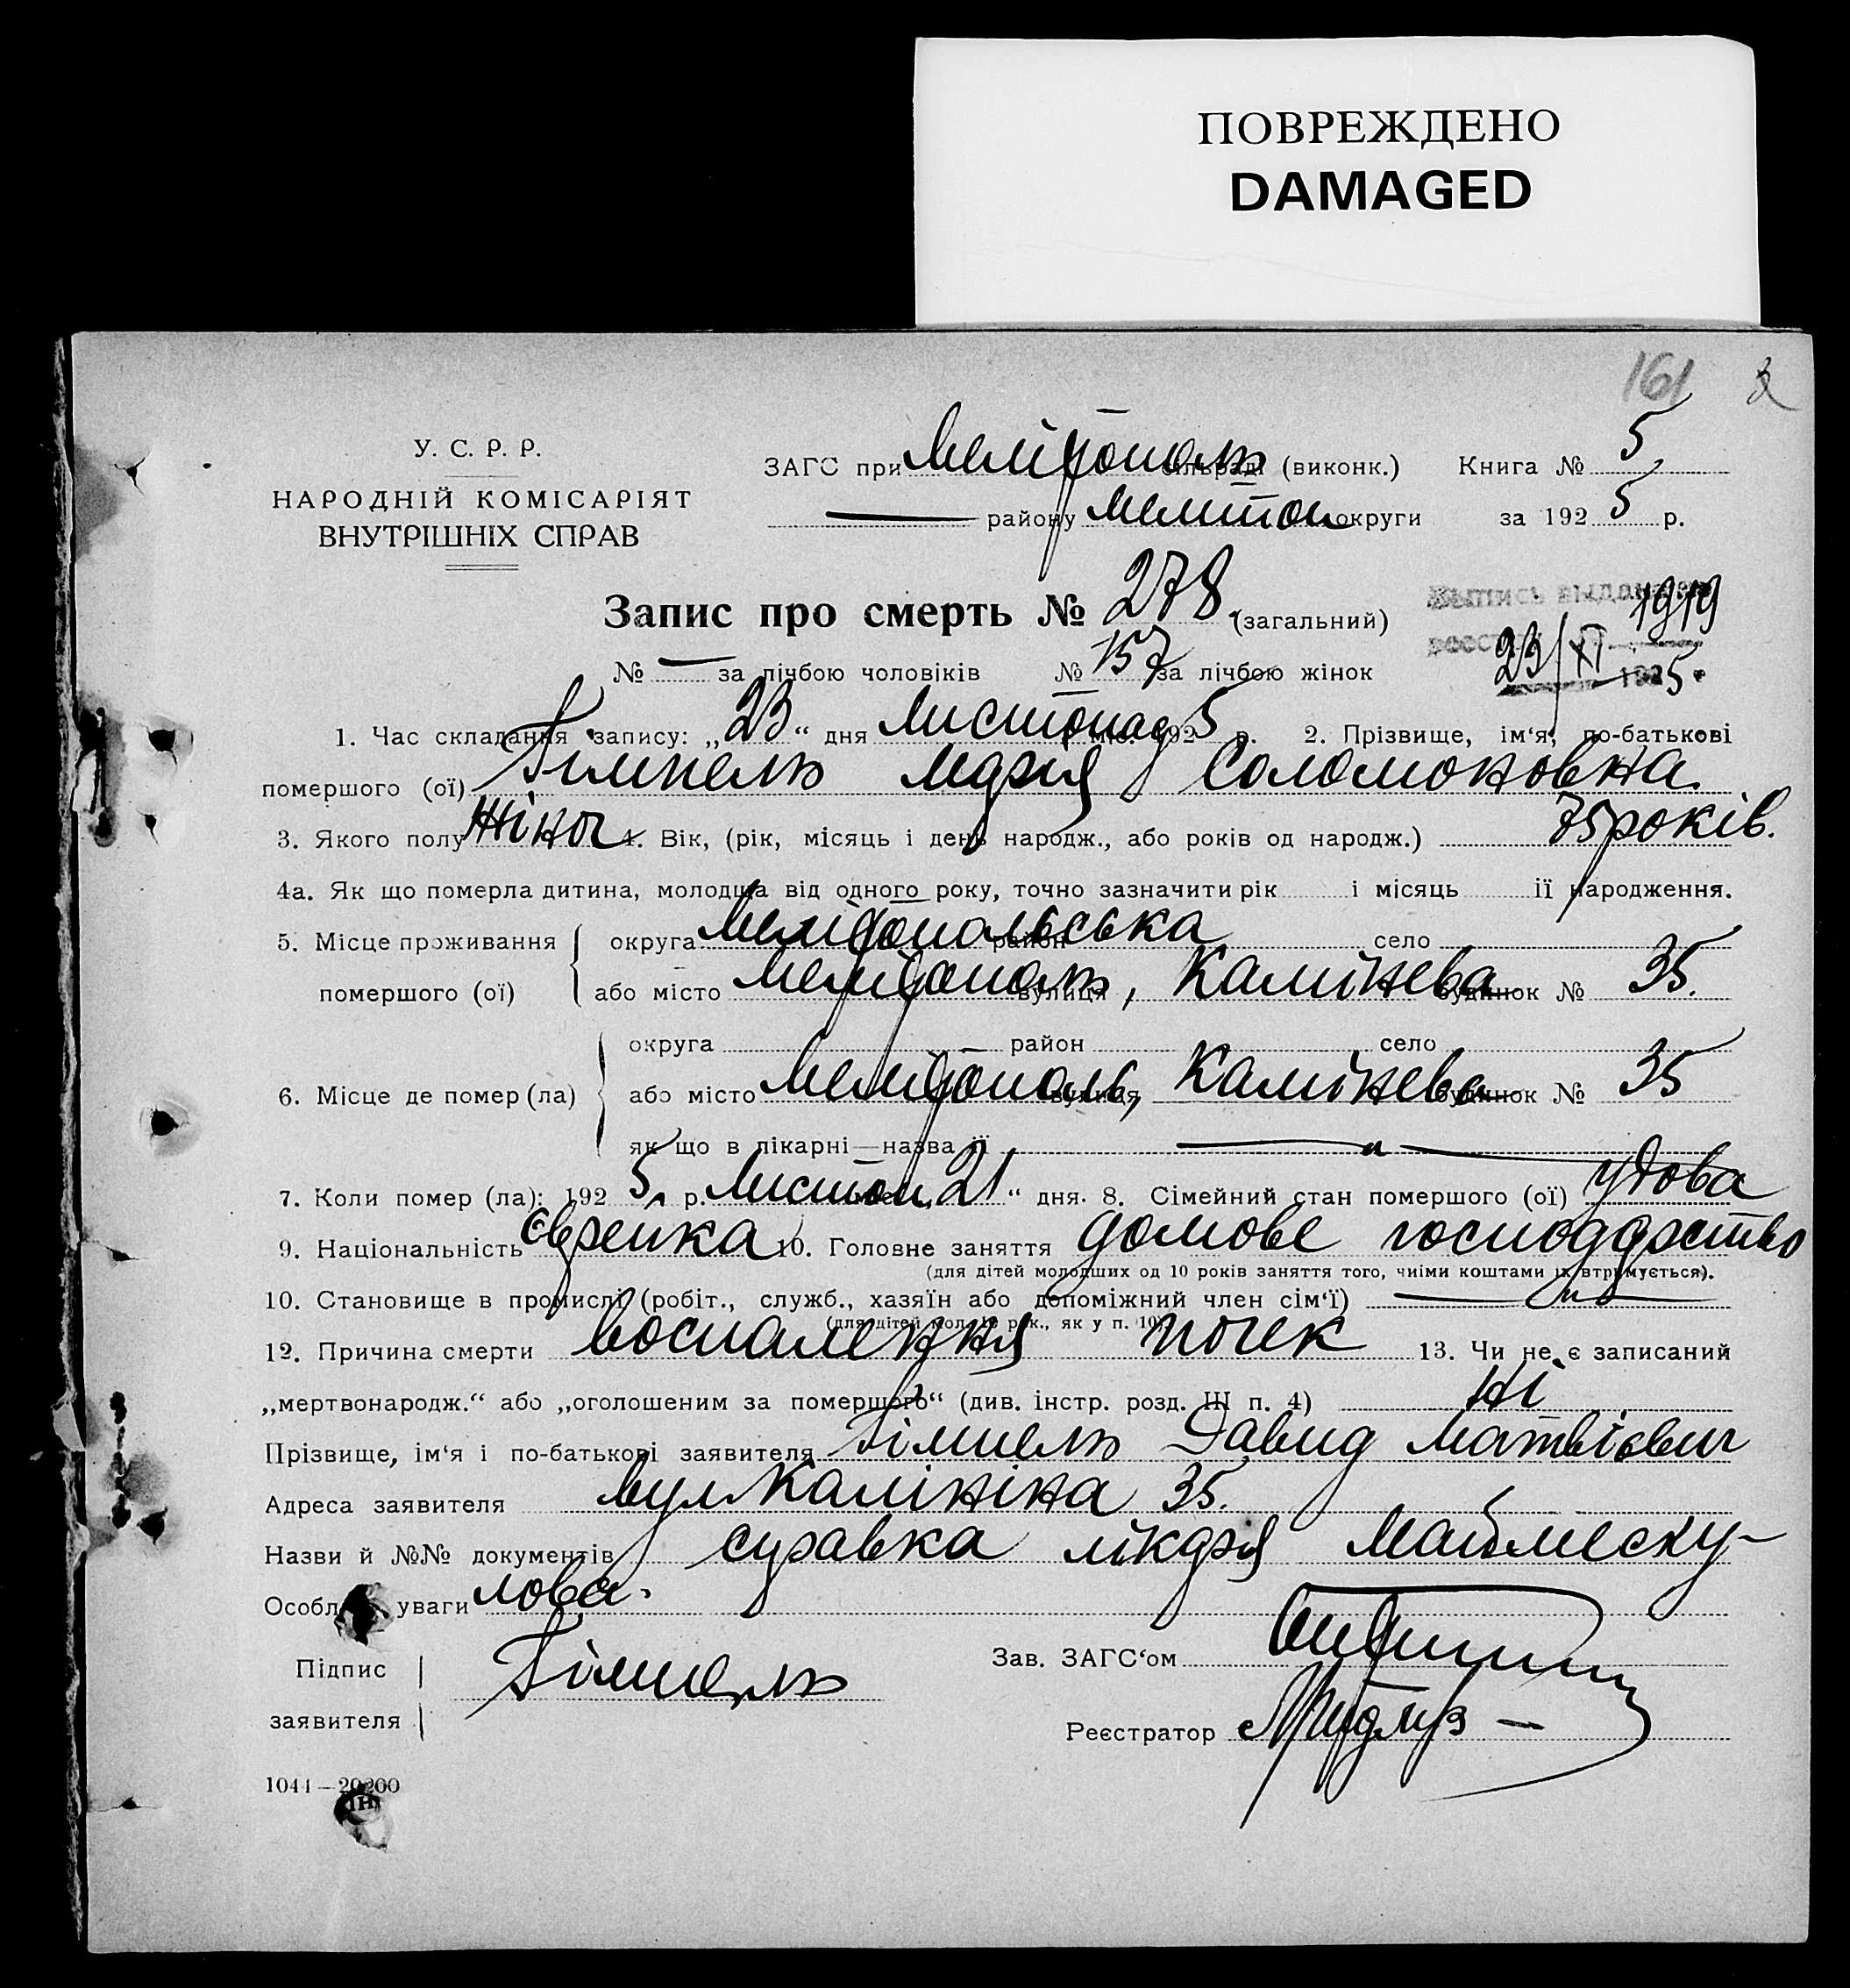 ПОВРЕЖДЕНО
DAMAGED
161
У. С. Р. Р.
НАРОДНІЙ КОМІСАРІЯТ
ВНУТРІШНІХ СПРАВ
ЗАГС при Мелітополь сільраді (виконк.) Книга № 5
— району Мелитоп округи за 1925 р.
Запис про смерть № 278 (загальний)
Выпись выдана 1919
№ — за лічбою чоловіків № 157 за лічбою жінок
23/XI 1925 г
1. Час складання запису: „23“ дня Листопад міс. 1925 р. 2. Прізвище, ім‘я, по-батькові
помершого (ої) Гімпель Марія Соломоновна
3. Якого полу Жіноч 4. Вік, (рік, місяць і день народж., або років од народж.) 75 років.
4а. Як що померла дитина, молодша від одного року, точно зазначити рік і місяць її народження.
5. Місце проживання округа Мелітопольська район село
помершого (ої) або місто Мелітополь, вулиця Калінева будинок № 35.
округа район село
6. Місце де помер (ла) або місто Мелітополь, вулиця Калінева будинок № 35
як що в лікарні—назва її — „ —
7. Коли помер (ла): 1925 р. Листоп. 21 “ дня. 8. Сімейний стан помершого (ої) удова
9. Національність Єврейка 10. Головне заняття домове господарство
(для дітей молодших од 10 років заняття того, чиїми коштами їх втримується).
10. Становище в промислі (робіт., служб., хазяїн або допоміжний член сім‘ї) — „ —
(для дітей мол. 10 рок., як у п. 10)
12. Причина смерти воспалення почек 13. Чи не є записаний
„мертвонародж.“ або „оголошеним за помершого“ (див. інстр. розд. III п. 4) Ні
Прізвище, ім‘я і по-батькові заявителя Гімпель Давид Матвієвич
Адреса заявителя вул Калініна 35.
Назви й №№ документів справка лікаря
Особл уваги лова.
Підпис
заявителя
Гімпель
Зав. ЗАГС‘ом
Реєстратор
1044—20200